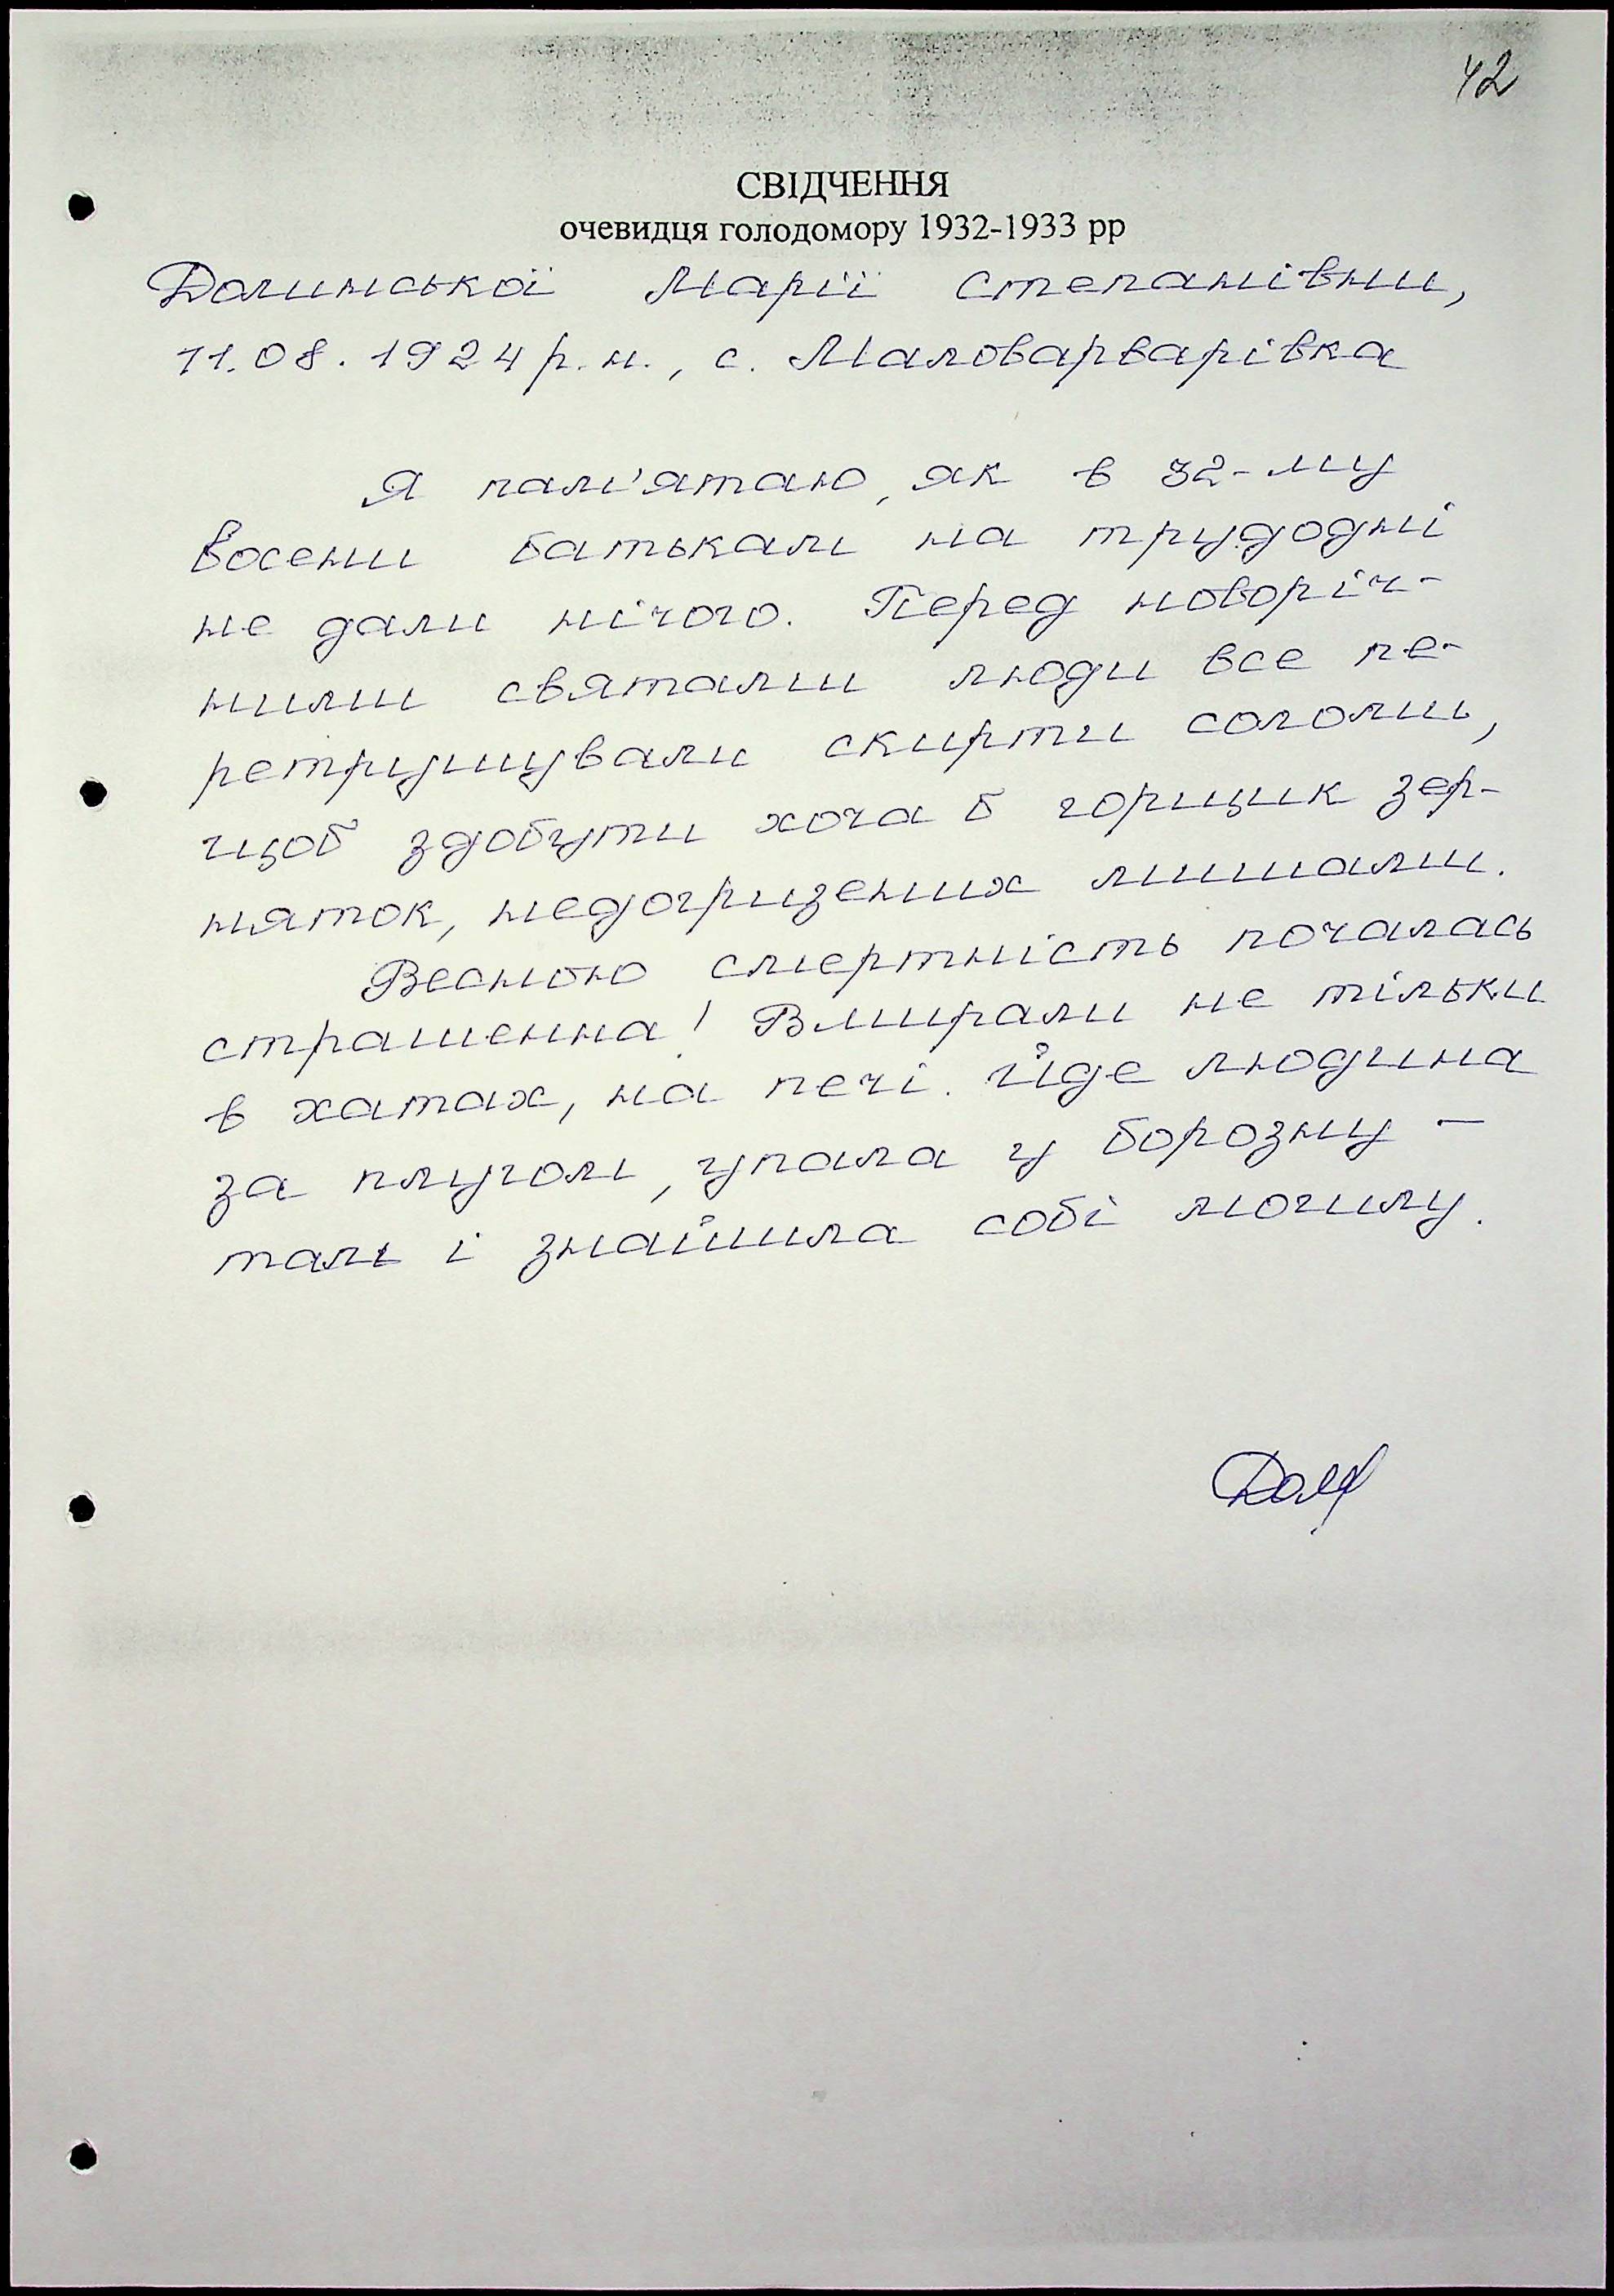 42
СВІДЧЕННЯ
очевидця голодомору 1932-1933 рр
Долинської Марії Степанівни,
11.08.1924 р.н., с. Маловарварівка
Я пам'ятаю, як в 32-му
восени батькам на трудодні
не дали нічого. Перед новоріч-
ними святами люди все пе-
ретрушували скирти соломи,
щоб здобути хоча б горщик зер-
няток, недогризених мишами.
Весною смертність почалась
страшенна! Вмирали не тільки
в хатах, на печі. Йде людина
за плугом, упала у борозну —
там і знайшла собі могилу.